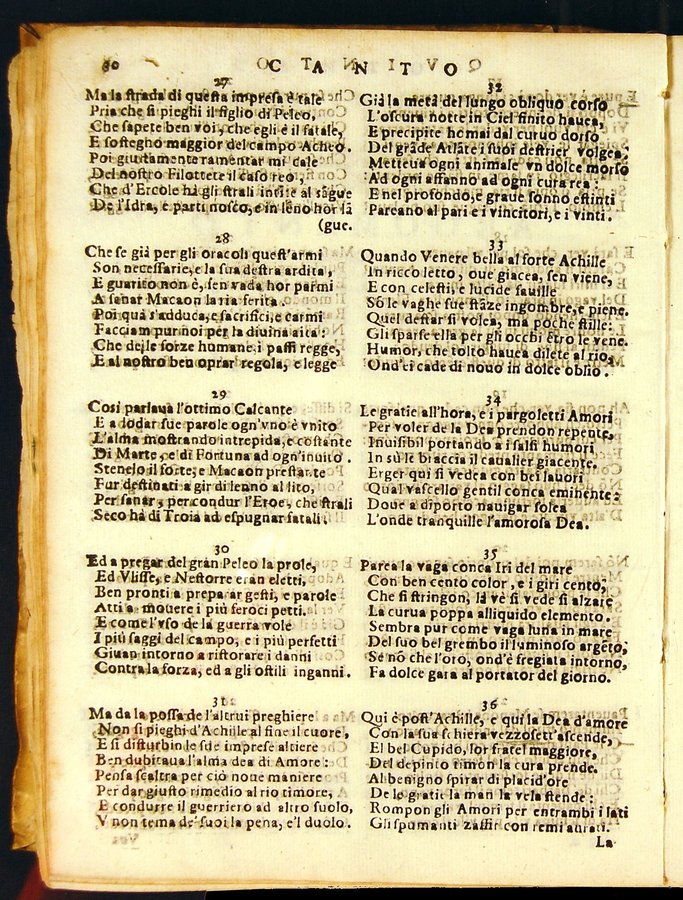 60
CANTO
27
Ma la strada di questa impresa è tale
Pria che si pieghi il figlio di Peleo,
Che sapete ben voi, che egli è il fatale,
E sostegno maggior del campo Acheo.
Poi giustamente ramentar mi cale
Del nostro Filottete il caso reo,
Che d'Ercole hà gli strali intisi al sāgue
De l'Idra, e parti nosco, e in Leno hor lā
(gue.
28
Che se già per gli oracoli quest'armi
Son necessarie, e la sua destra ardita,
E guarito non è, sen vada hor parmi
A sanar Macaon la ria ferita.
Poi quà s'adduca, e sacrifici, e carmi
Facciam pur noi per la diuina aita:
Che de le forze humane i passi regge,
E al nostro ben oprar regola, e legge
29
Così parlaua l'ottimo Calcante
E a lodar sue parole ogn'vno è vnito
L'alma mostrando intrepida, e costante
Di Marte, e di Fortuna ad ogn'inuito.
Stenelo il forte, e Macaon prestante
Fur destinati a gir di Lenno al lito,
Per sanar, per condur l'Eroe, che strali
Seco hà di Troia ad espugnar fatali.
30
Ed a pregar del gran Peleo la prole,
Ed Vlisse, e Nestorre eran eletti,
Ben pronti a preparar gesti, e parole
Atti a mouere i più feroci petti.
E come l'vso de la guerra vole
I più saggi del campo, e i più perfetti
Giuan intorno a ristorare i danni
Contra la forza, ed a gli ostili inganni.
31
Ma da la possa de l'altrui preghiere
Non si pieghi d'Achille al fine il cuore,
E si disturbin le sue imprese altiere
Ben dubitaua l'alma dea di Amore:
Pensa scaltra per ciò noue maniere
Per dar giusto rimedio al rio timore,
E condurre il guerriero ad altro suolo,
V non tema de' suoi la pena, e'l duolo.
32
Già la metà del lungo obliquo corso
L'oscura notte in Ciel finito hauea,
E precipite homai dal curuo dorso
Del grāde Atlāte i suoi destrier volgea;
Metteua ogni animale vn dolce morso
Ad ogni affanno ad ogni cura rea:
E nel profondo, e graue sonno estinti
Pareano al pari e i vincitori, e i vinti.
33
Quando Venere bella al forte Achille
In ricco letto, oue giacea, sen viene,
E con celesti, e lucide fauille
Sō le vaghe sue stāze ingombre, e piene.
Quel destar si volea, ma poche stille:
Gli sparse ella per gli occhi ētro le vene.
Humor, che tolto hauea di lete al rio,
Ond'ei cade di nouo in dolce oblio.
34
Le gratie all'hora, e i pargoletti Amori
Per voler de la Dea prendon repente,
Inuisibil portando a i salsi humori
In sù le braccia il caualier giacente.
Erger qui si vedea con bei lauori
Qual vascello gentil conca eminente:
Doue a diporto nauigar solea
L'onde tranquille l'amorosa Dea.
35
Parea la vaga conca Iri del mare
Con ben cento color, e i giri cento,
Che si stringon, là ve si vede si alzare
La curua poppa al liquido elemento.
Sembra pur come vaga luna in mare
Del suo bel grembo il luminoso argēto;
Se nō che l'oro, ond'è fregiata intorno,
Fa dolce gara al portator del giorno.
36
Qui è post'Achille, e qui la Dea d'amore
Con la sua schiera vezzosett'ascende,
E il bel Cupido, lor fratel maggiore,
Del depinto timon la cura prende.
Al benigno spirar di placid'ore
De le gratie la man la vela stende:
Rompon gli Amori per entrambi i lati
Gli spumanti zaffir con remi aurati.
La